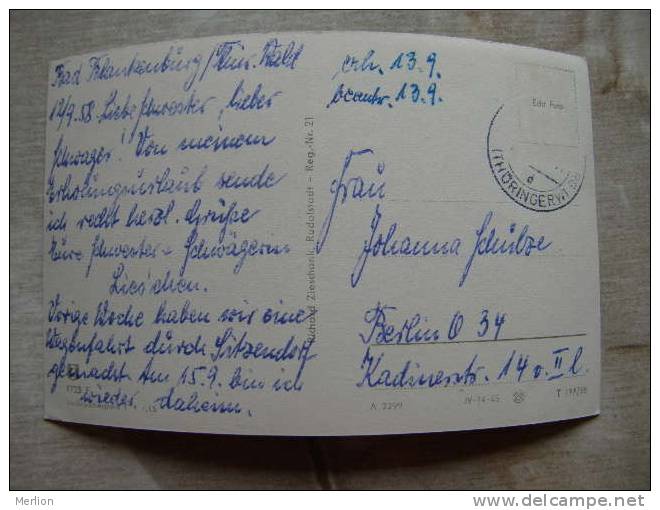 Bad Blankenburg/Thür. Wald
12/9.58. Liebe Schwester, lieber
Schwager! Von meinem
Erholungsurlaub sende
ich recht herzl. Grüße
Eure Schwester - Schwägerin
Lies'chen.
Vorige Woche haben wir eine
Wagenfahrt durch Sitzendorf
gemacht. Am 15.9. bin ich
wieder daheim.
Richard Zieschank, Rudolstadt - Reg.-Nr. 21
erh. 13.9.
beantw. 13.9.
Echt Foto
(THÜRINGERW
d
Frau
Johanna Schulze
Berlin O 34
Kadinerstr. 14 v. II l.
A 2299
IV-14-45
T
Merlion
www.delcampe.net